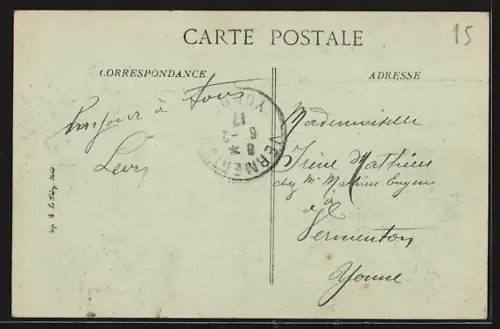 CARTE POSTALE
15
CORRESPONDANCE
ADRESSE
Bonjour à tous
Mademoiselle
Irène Mathieu
chez Mr Mathieu Eugène
à
Vermenton
Yonne
VERMENTON
8 *
6 - 2
17
YONNE